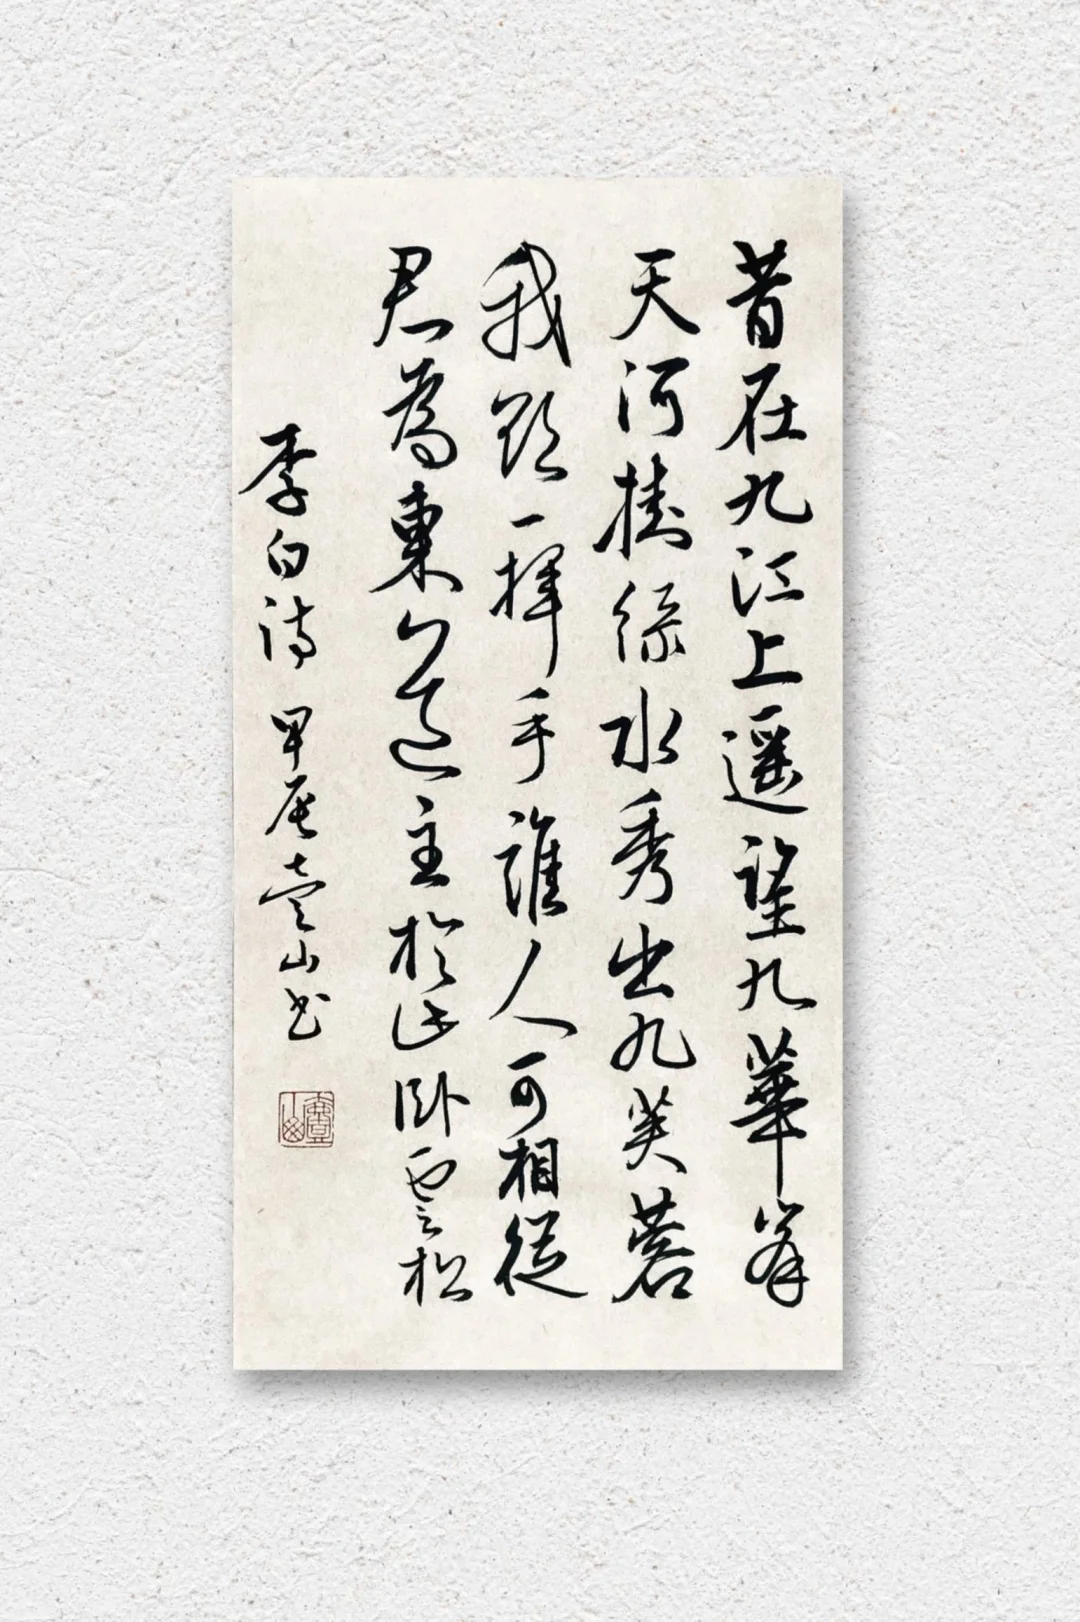 昔在九江上遥望九華峯
天河掛綠水秀出九芙蓉
我欲一揮手誰人可相從
君為東道主於此卧雲松
李白詩 甲辰 山书